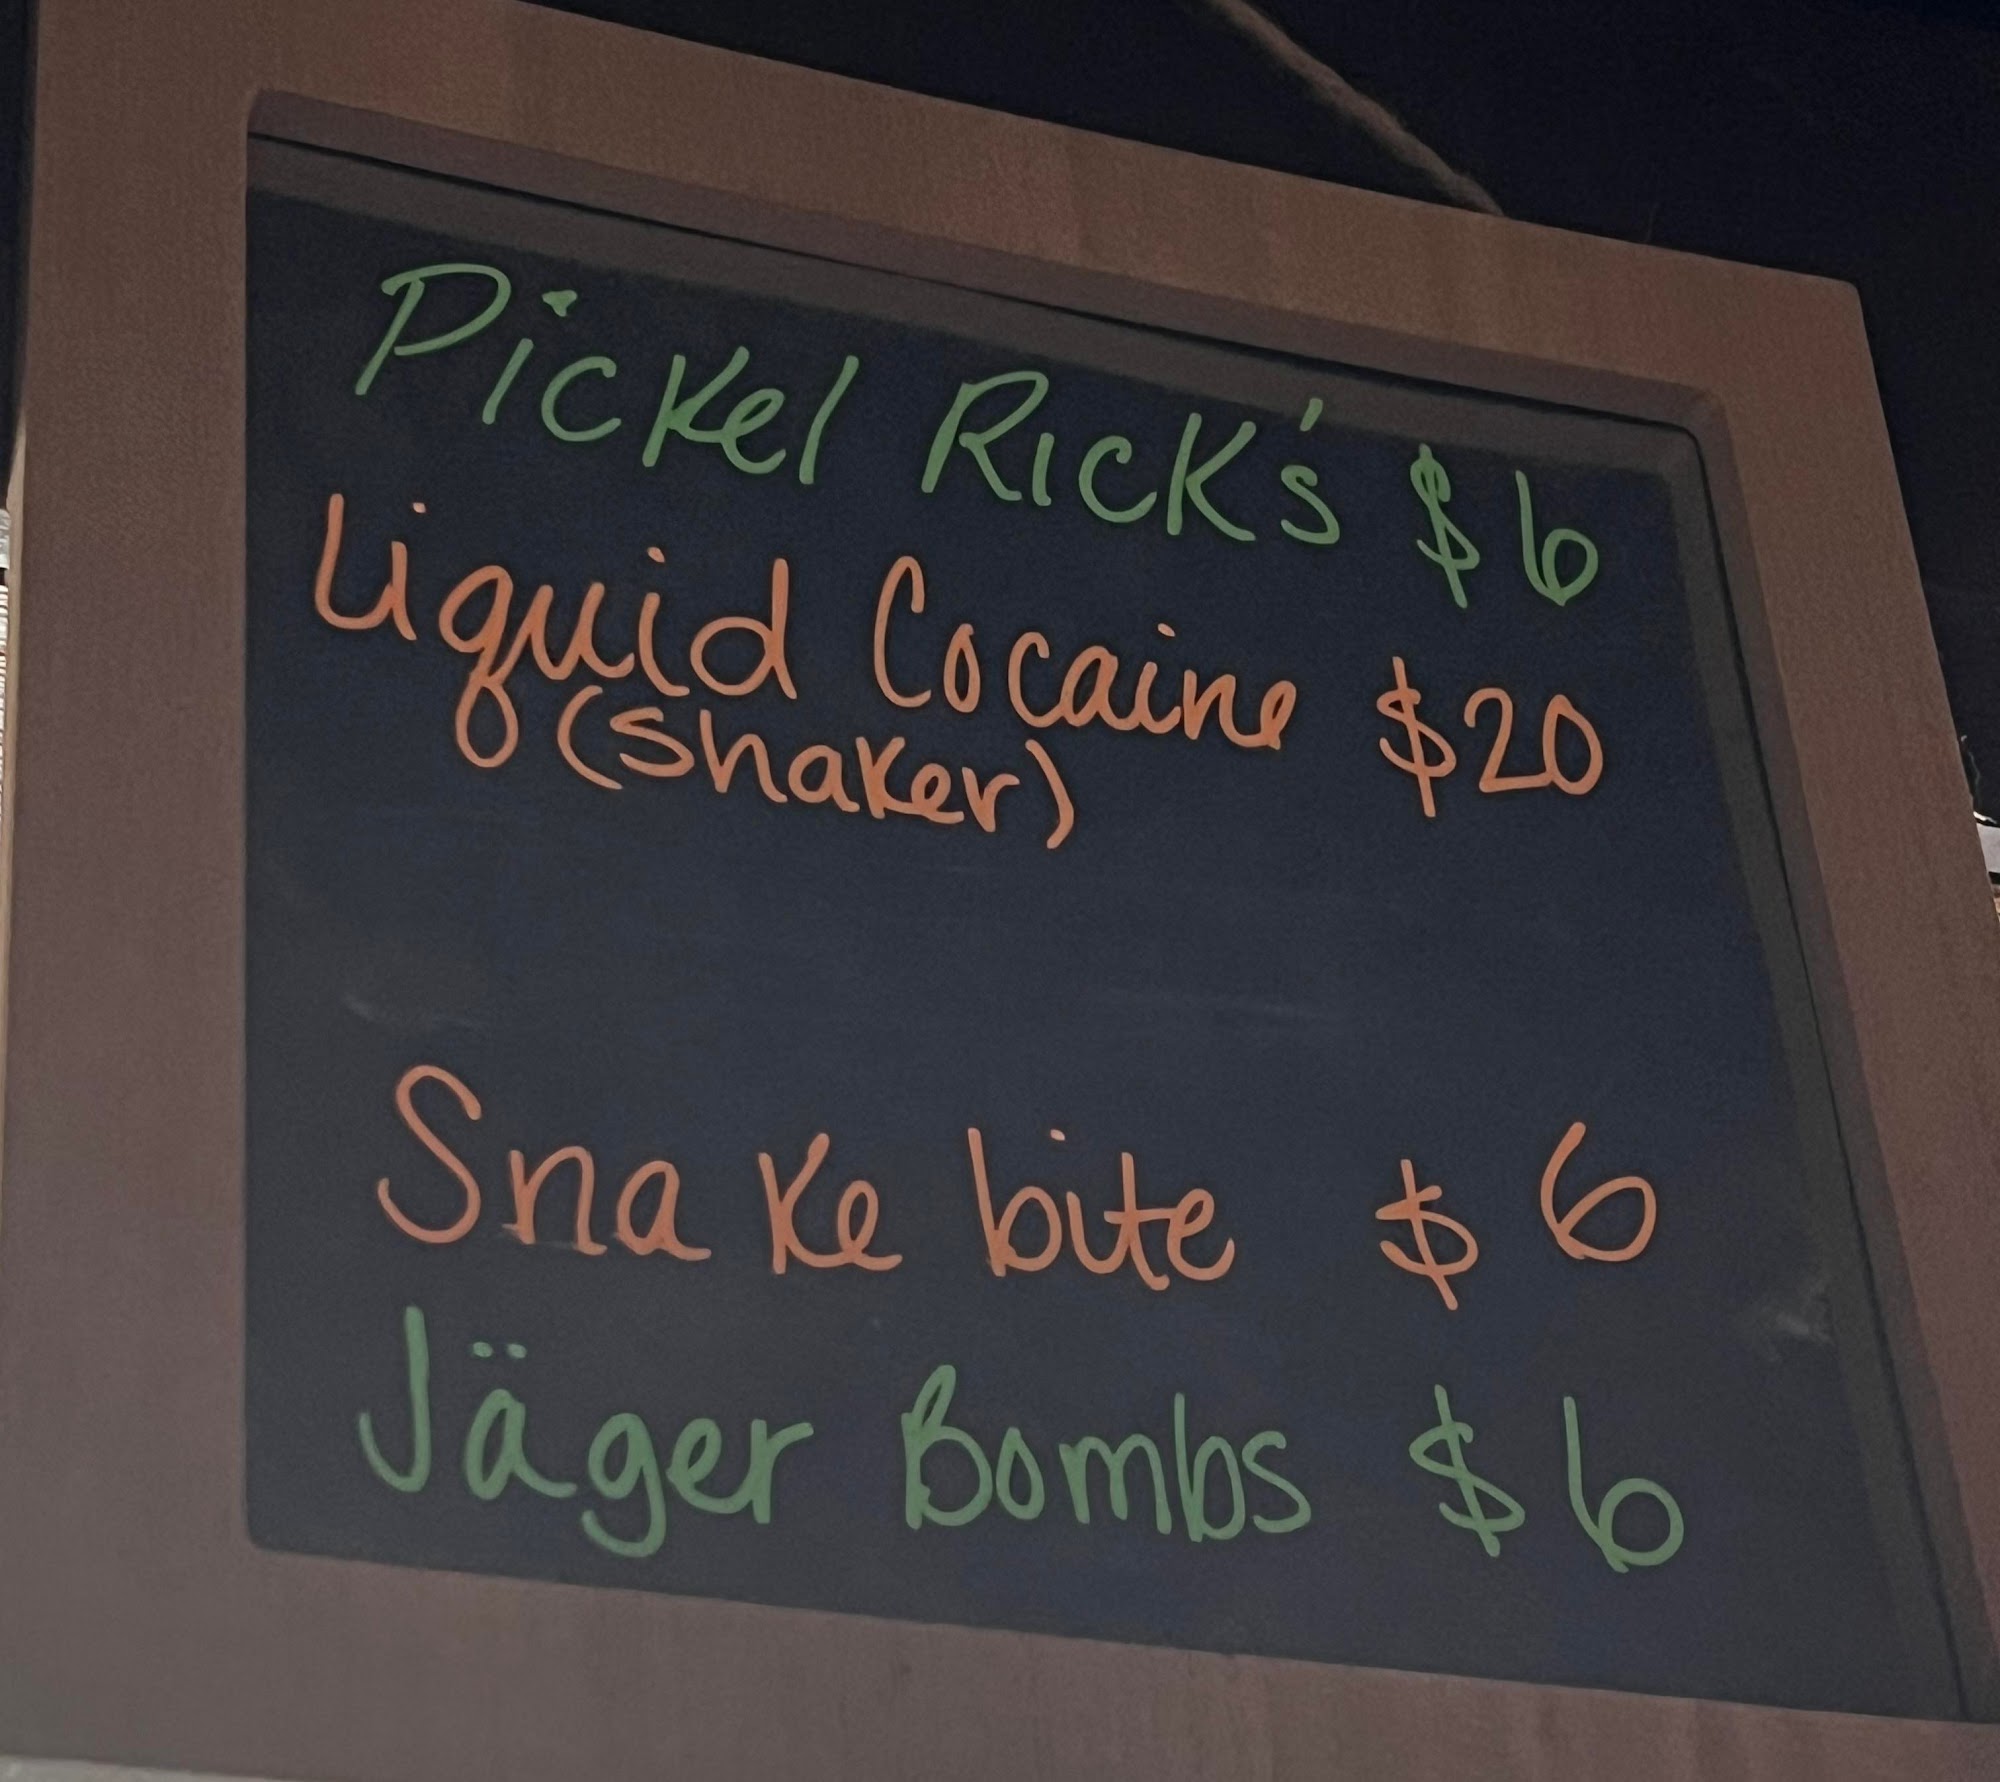 Pickel Rick's $6
Liquid Cocaine $20
(shaker)
Snake bite $6
Jäger Bombs $6